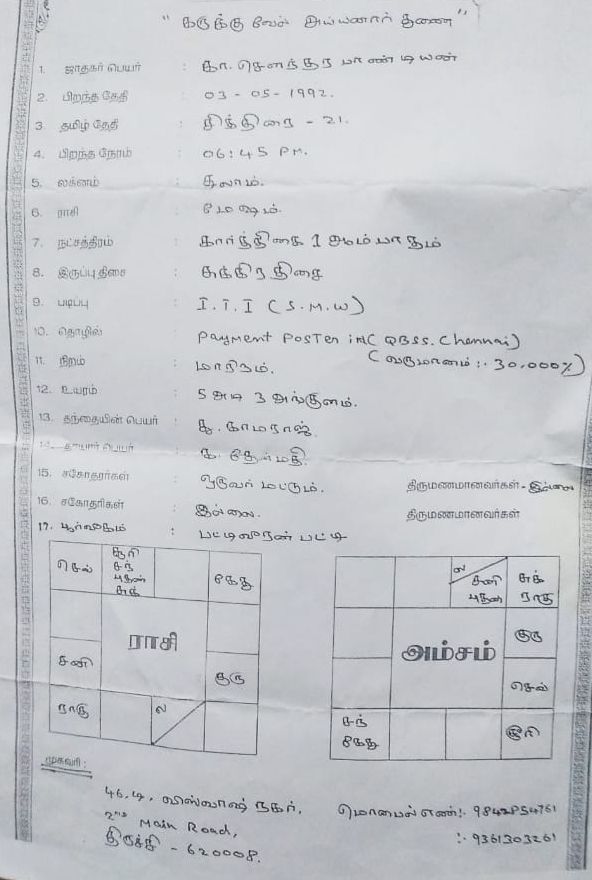 " கருக்கு வேல் அய்யனார் துணை "
1. ஜாதகர் பெயர் : கா. சௌந்தர பாண்டியன்
2. பிறந்த தேதி : 03 - 05 - 1992.
3. தமிழ் தேதி : சித்திரை - 21.
4. பிறந்த நேரம் : 06:45 PM.
5. லக்னம் : துலாம்.
6. ராசி : மேஷம்.
7. நட்சத்திரம் : கார்த்திகை 1 ஆம் பாதம்
8. இருப்பு திசை : சுக்கிர திசை
9. படிப்பு : I. T. I (S. M. W)
10. தொழில் : Payment Poster in (QBSS. Chennai)
(வருமானம் :. 30,000%)
11. நிறம் : மாநிறம்.
12. உயரம் : 5 அடி 3 அங்குலம்.
13. தந்தையின் பெயர் : காமராஜ்
14. தாயார் பெயர் : கா. தேன்மதி.
15. சகோதரர்கள் : ஒருவர் மட்டும். திருமணமானவர்கள் - இல்லை
16. சகோதரிகள் : இல்லை. திருமணமானவர்கள்
17. பூர்வீகம் : பட்டிவீரன் பட்டி
செவ்
சூரி
சந்
புதன்
சுக்
கேது
ராசி
சனி
குரு
ராகு
ல
ல
சனி
புதன்
சுக்
ராகு
குரு
அம்சம்
செவ்
சந்
கேது
சூரி
முகவரி :
46. டி, விஸ்வாஷ் நகர்,
2nd Main Road,
திருச்சி - 620008.
மொபைல் எண்:-
:- 9361303261